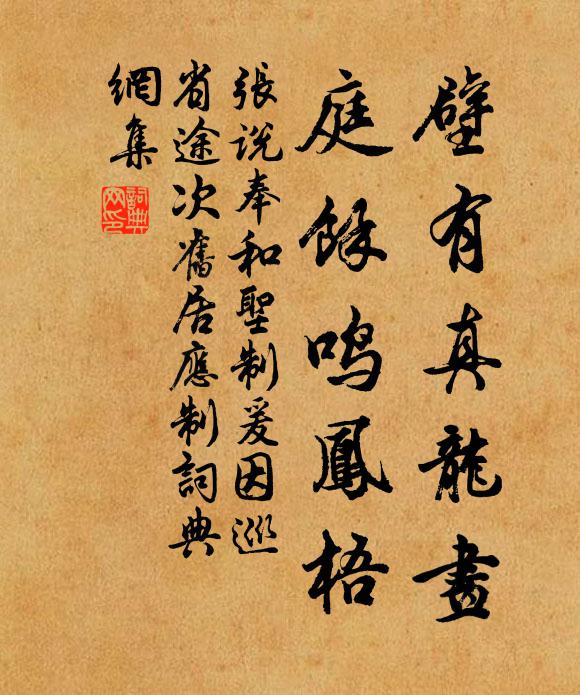 壁有真龍畫
庭餘鳴鳳梧
張說奉和聖制爰因巡
省途次舊居應制詞典
網集
詞典網印